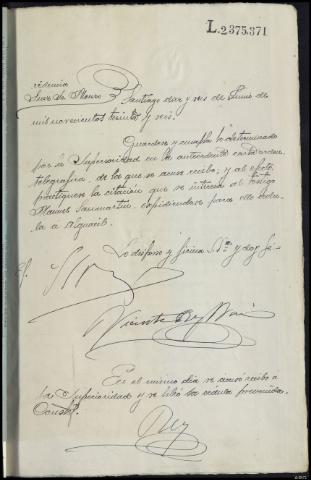 L.2375.371
Santiago diez y seis de Junio de
mil novecientos treinta y seis.
Guardese y cumpla lo determinado
por la Superioridad en la antecedente carta orden
telegrafica, de los que se acuse recibo; y al efecto
practiquese la citación que se interesa al testigo
Manuel Sanmartin expidiendose para ello cedu-
la a Alguacil.
Lo dispuso y firma S.S.ª y doy fé=
Vicente Rey
En el mismo dia se acusó recibo a
la Superioridad y se libró la cédula prevenida.
Rey